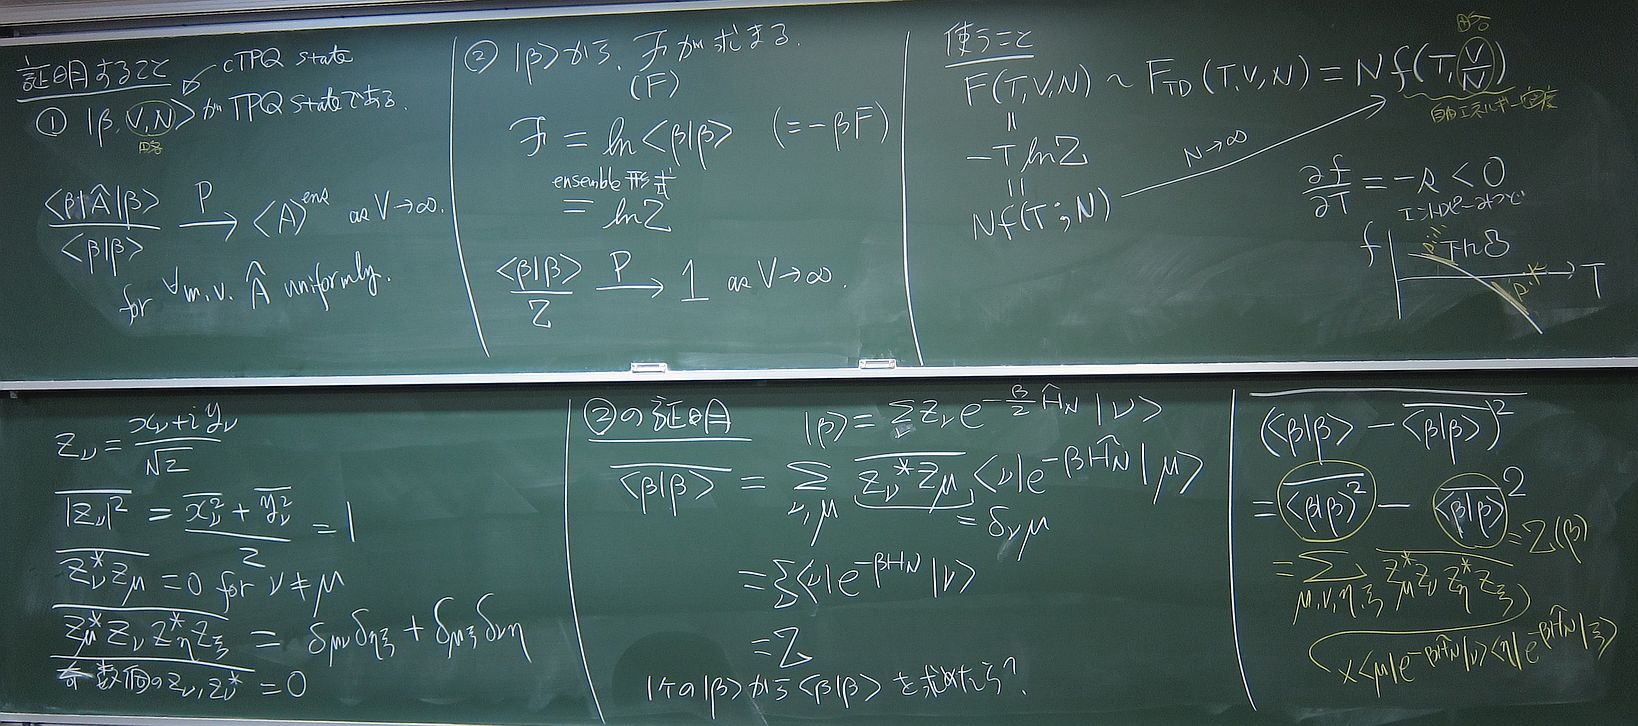 証明すること
cTPQ state
① |β, V, N> が TPQ state である.
<β|Â|β> / <β|β> P→ <A>^ens as V→∞.
for ∀m.v. Â uniformly.
② |β> から、ℱ が求まる.
(F)
ℱ = ln<β|β> (= -βF)
ensemble 形式
= ln Z
<β|β> / Z P→ 1 as V→∞.
使うこと
F(T,V,N) ~ F_TD(T,V,N) = N f(T, V/N)
自由エネルギー密度
=
-T ln Z
=
N f(T ; N)
N→∞
∂f/∂T = -s < 0
エントロピーみつど
f
T
z_ν = (x_ν + i y_ν) / √2
\overline{|z_ν|^2} = (\overline{x_ν^2} + \overline{y_ν^2}) / 2 = 1
\overline{z_ν^* z_μ} = 0 for ν ≠ μ
\overline{z_μ^* z_ν z_η^* z_ξ} = δ_μν δ_ηξ + δ_μξ δ_νη
奇数個の z_ν, z_ν^* = 0
②の証明
|β> = Σ z_ν e^{-β/2 Ĥ_N} |ν>
\overline{<β|β>} = Σ_{ν,μ} \overline{z_ν^* z_μ} <ν|e^{-βĤ_N}|μ>
= δ_νμ
= Σ<ν|e^{-βĤ_N}|ν>
= Z
1ケの |β> から <β|β> を求めたら?
\overline{(<β|β> - \overline{<β|β>})^2}
= \overline{<β|β>^2} - \overline{<β|β>}^2
= Z(β)
= Σ_{μ,ν,η,ξ} \overline{z_μ^* z_ν z_η^* z_ξ}
× <μ|e^{-βĤ_N}|ν><η|e^{-βĤ_N}|ξ>